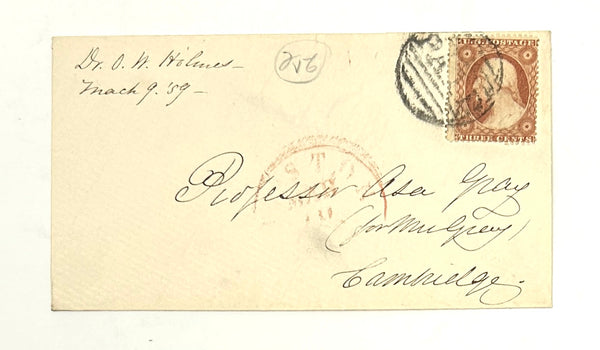 Dr. O. W. Holmes –
Mach 9. '59 –
U.S. POSTAGE
THREE CENTS
PAID
Professor Asa Gray
(for Mrs Gray)
Cambridge.